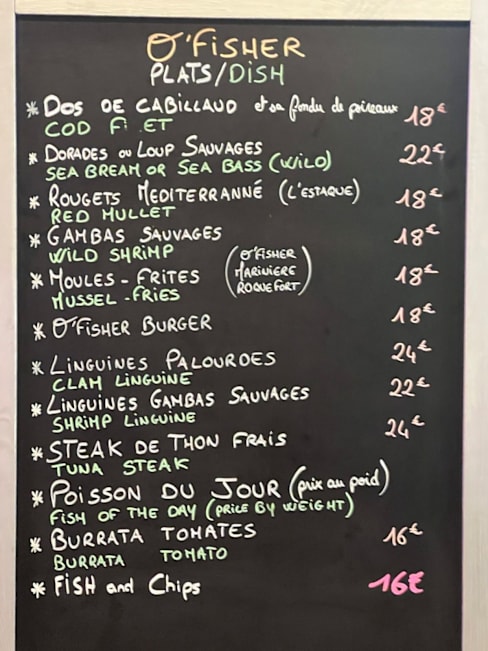 O'FISHER
PLATS/DISH
* DOS DE CABILLAUD et sa fondu de poireaux 18€
COD FI ET
* DORADES OU LOUP SAUVAGES 22€
SEA BREAM OR SEA BASS (WILD)
* ROUGETS MEDITERRANNÉ (L'ESTAQUE) 18€
RED MULLET
* GAMBAS SAUVAGES 18€
WILD SHRIMP
* MOULES - FRITES (O'FISHER MARINIERE ROQUEFORT) 18€
MUSSEL - FRIES
* O'FISHER BURGER 18€
* LINGUINES PALOURDES 24€
CLAM LINGUINE
* LINGUINES GAMBAS SAUVAGES 22€
SHRIMP LINGUINE
* STEAK DE THON FRAIS 24€
TUNA STEAK
* POISSON DU JOUR (prix au poid)
FISH OF THE DAY (PRICE BY WEIGHT)
* BURRATA TOMATES 16€
BURRATA TOMATO
* FISH and Chips 16€